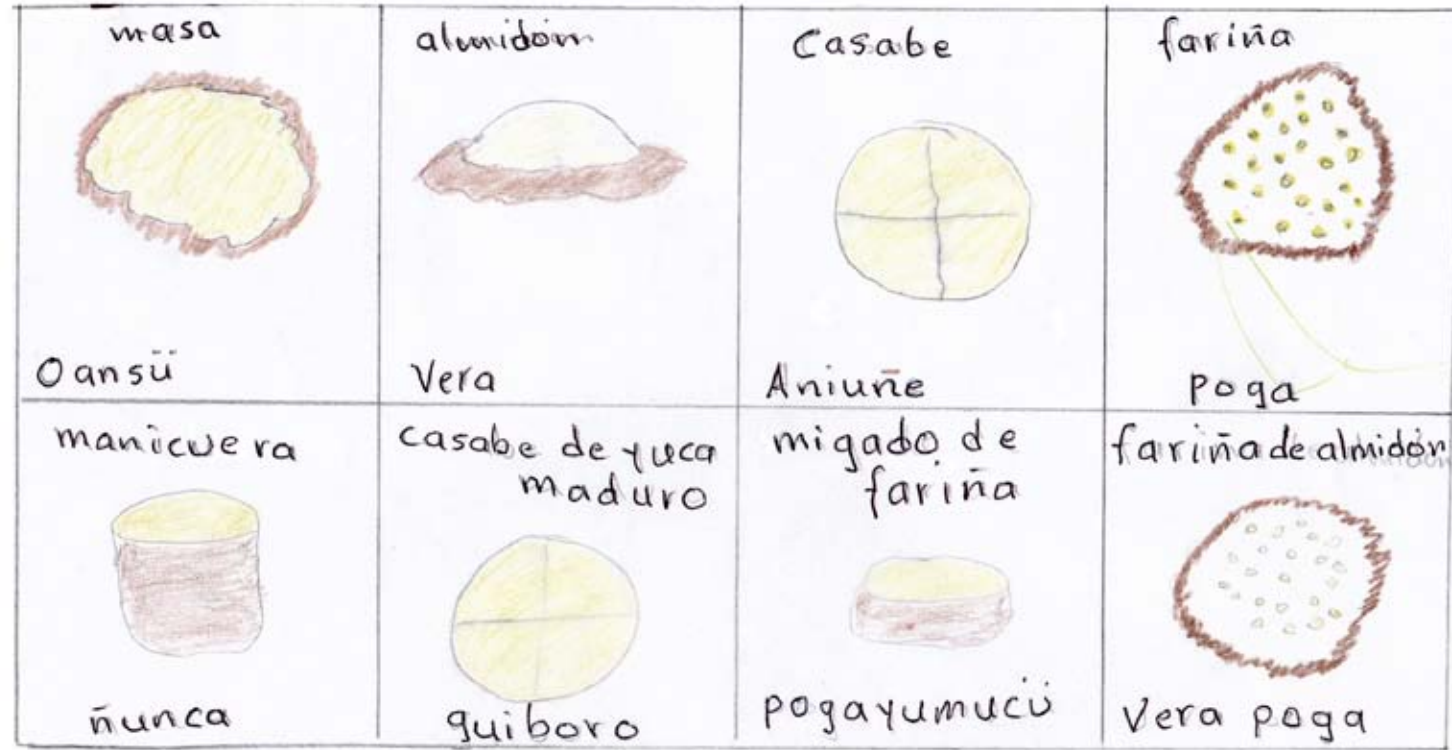 masa
almidón
Casabe
fariña
Oansü
Vera
Aniuñe
poga
manicuera
casabe de yuca
maduro
migado de
fariña
fariña de almidón
ñunca
guiboro
pogayumucü
Vera poga